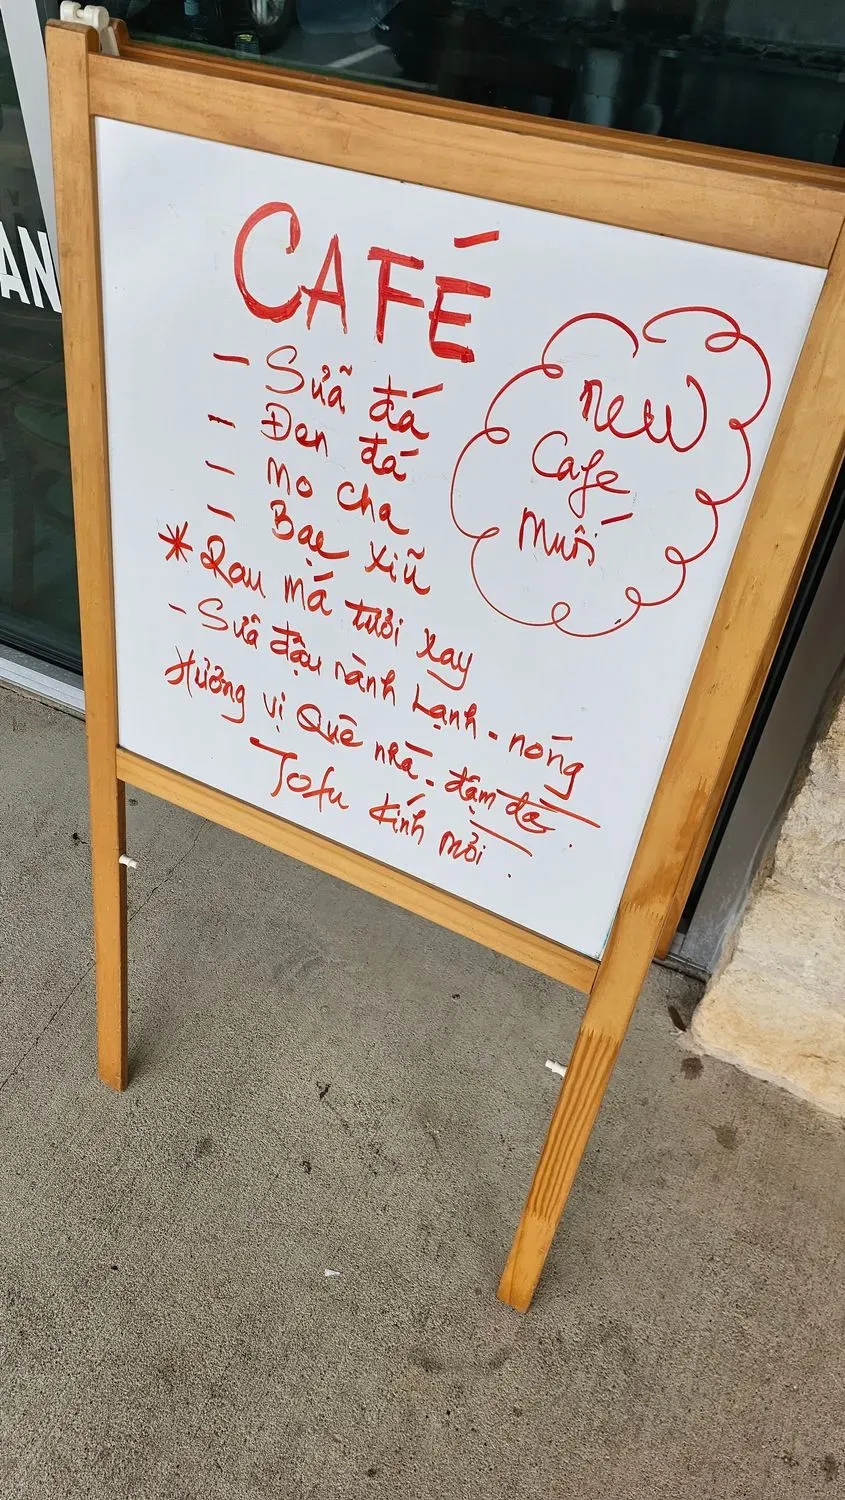 CAFÉ
- Sữa đá
- Đen đá
- Mo cha
- Bạc xỉu
* Rau má tươi xay
- Sữa đậu nành Lạnh - nóng
Hương vị Quê nhà - đậm đà.
Tofu kính mời.
new
Cafe
muối
AN